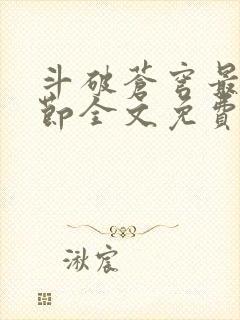 斗破苍穹最
节全文免费
湫宸